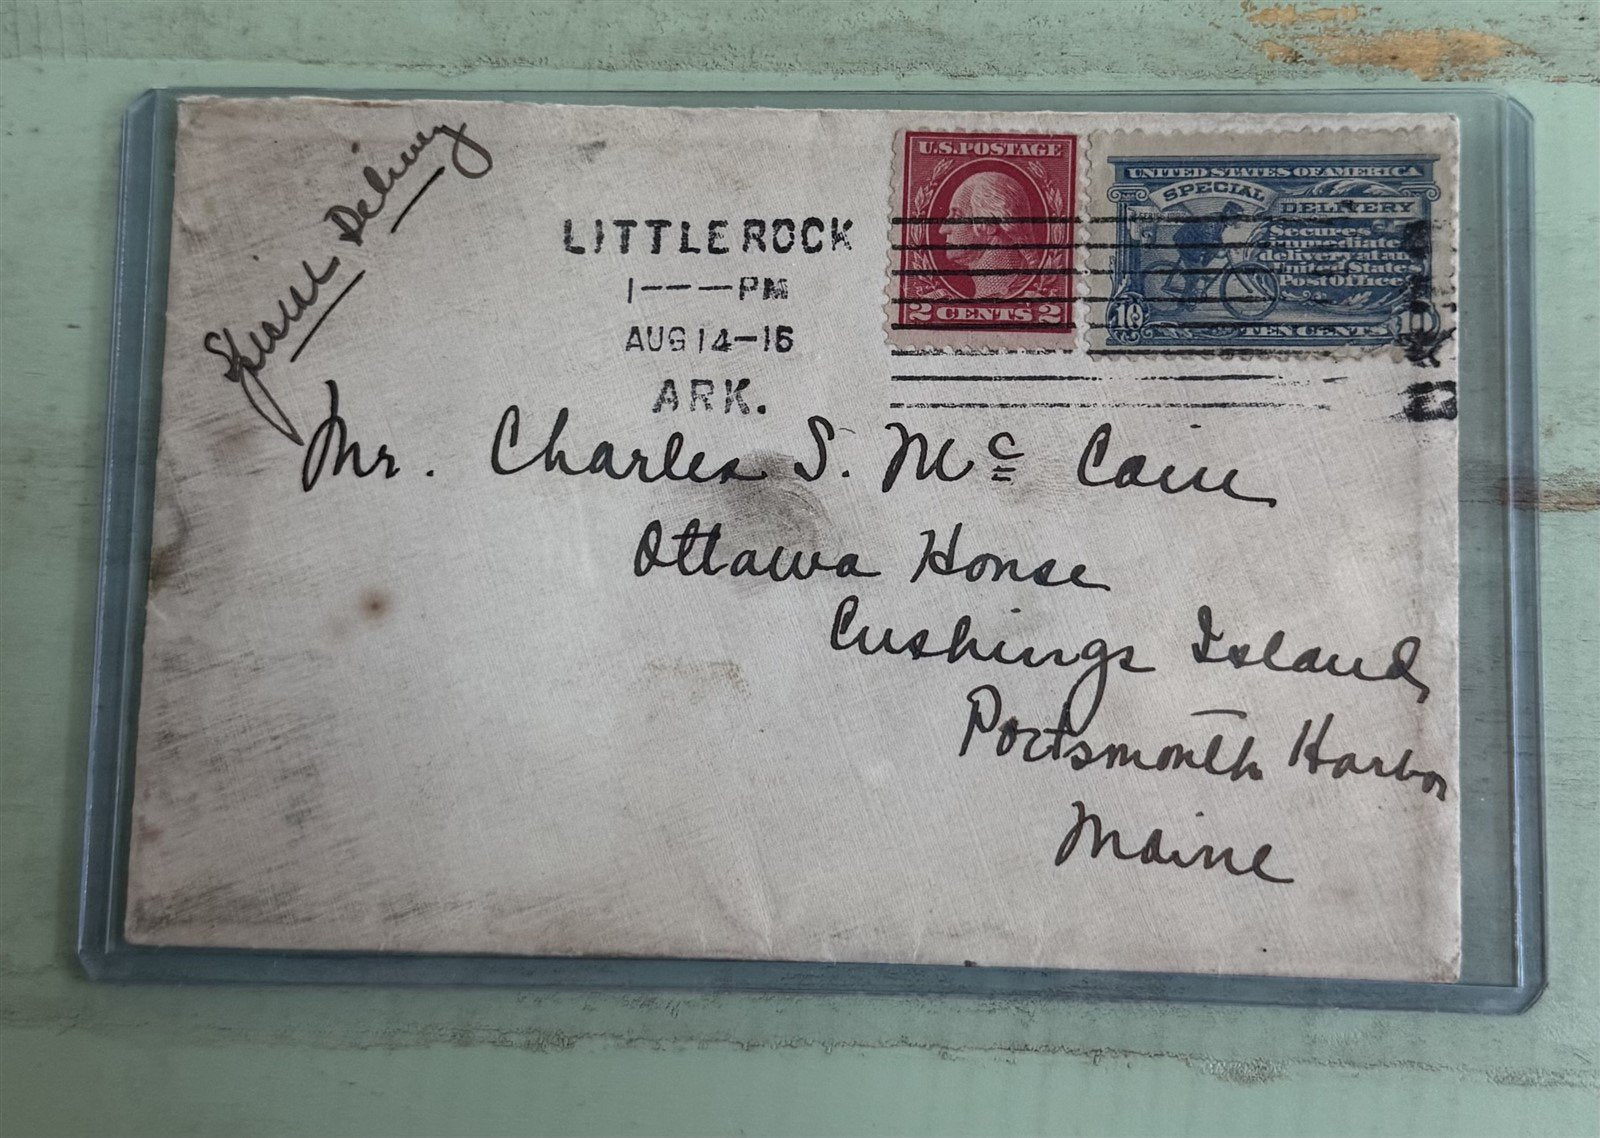 Special Delivery
LITTLE ROCK
1 - - - PM
AUG 14 - 16
ARK.
U.S. POSTAGE
2 CENTS 2
UNITED STATES OF AMERICA
SPECIAL DELIVERY
Secures
immediate
delivery at an
United States
Post office
10 TEN CENTS 10
Mr. Charles S. McCain
Ottawa House
Cushings Island,
Portsmouth Harbor
Maine